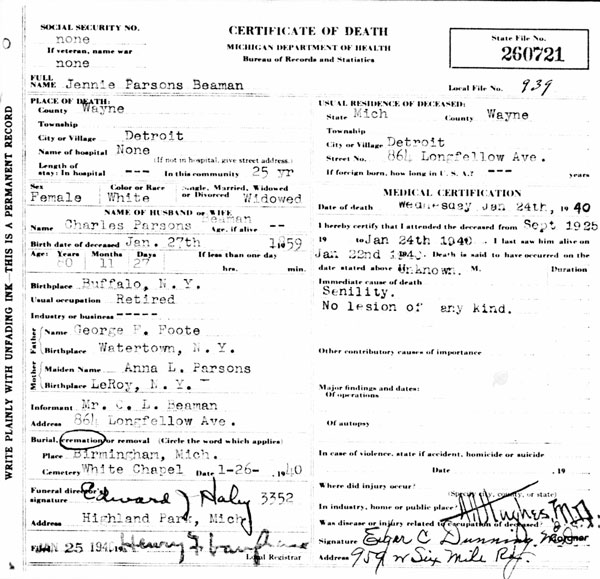 SOCIAL SECURITY NO.
none
If veteran, name war
none
CERTIFICATE OF DEATH
MICHIGAN DEPARTMENT OF HEALTH
Bureau of Records and Statistics
State File No.
260721
Local File No. 939
FULL NAME Jennie Parsons Beaman
WRITE PLAINLY WITH UNFADING INK—THIS IS A PERMANENT RECORD
PLACE OF DEATH:
County Wayne
Township
City or Village Detroit
Name of hospital None
(If not in hospital, give street address.)
Length of
stay: In hospital --- In this community 25 yr
Sex Color or Race Single, Married, Widowed or Divorced
Female White Widowed
NAME OF HUSBAND or WIFE
Name Charles Parsons Beaman Age, if alive --
Birth date of deceased Jan. 27th 1859
Age: Years Months Days If less than one day
80 11 27 hrs. min.
Birthplace Buffalo, N.Y.
Usual occupation Retired
Industry or business -----
Father
Name George F. Foote
Birthplace Watertown, N.Y.
Mother
Maiden Name Anna L. Parsons
Birthplace LeRoy, N.Y.
Informant Mr. C. L. Beaman
Address 864 Longfellow Ave.
Burial, cremation or removal (Circle the word which applies)
Place Birmingham, Mich.
Cemetery White Chapel Date 1-26- 1940
Funeral director's
signature Edward J Haley 3352
Address Highland Park, Mich
JAN 25 194 Henry F. Local Registrar
USUAL RESIDENCE OF DECEASED:
State Mich County Wayne
Township
City or Village Detroit
Street No. 864 Longfellow Ave.
If foreign born, how long in U. S. A.? --- years
MEDICAL CERTIFICATION
Date of death Wednesday Jan 24th, 1940
I hereby certify that I attended the deceased from Sept 1925
19 to Jan 24th 1940 . I last saw him alive on
Jan 22nd 1940. Death is said to have occurred on the
date stated above Unknown. M. Duration
Immediate cause of death
Senility.
No lesion of any kind.
Other contributory causes of importance
Major findings and dates:
Of operations
Of autopsy
In case of violence, state if accident, homicide or suicide
Date , 19
Where did injury occur?
(Specify city, county, or state)
In industry, home or public place?
Was disease or injury related to occupation of deceased?
Hughes M.D.
Signature Edgar C Dunning Coroner
Address 959 W Six Mile Rd.